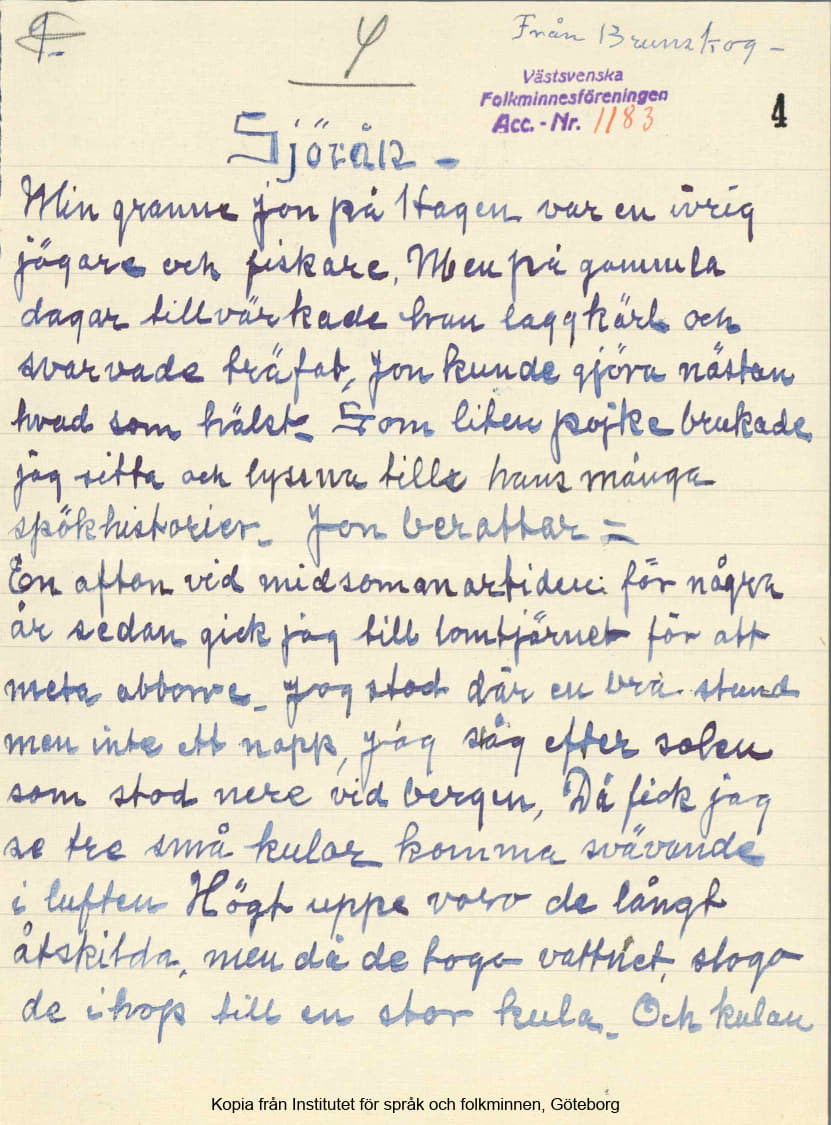 4
Från Brunskog -
Västsvenska
Folkminnesföreningen
Acc. - Nr. 1183
4
Sjörån -
Min granne Jon på Hagen var en ivrig
jägare och fiskare, Men på gammla
dagar tillvärkade han laggkärl och
svarvade träfat, Jon kunde gjöra nästan
hvad som hälst - Som liten pojke brukade
jag sitta och lyssna tills hans många
spökhistorier - Jon berattar =
En afton vid midsommartiden för några
år sedan gick jag till lomtjärnet för att
meta abborre - Jag stod där en bra stund
men inte ett napp, jag såg efter solen
som stod nere vid bergen, Då fick jag
se tre små kulor komma svävande
i luften Högt uppe voro de långt
åtskilda, men då de togo vattnet, slogo
de ihop till en stor kula - Och kulan
Kopia från Institutet för språk och folkminnen, Göteborg